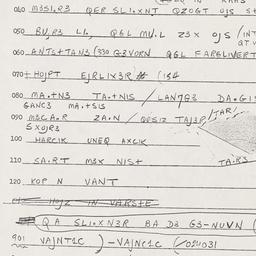 040 M3SI.R3 QEP SLI.XNT QZOGT OJS S
050 BU.R3 LL, Q6L MU.L Z3X OJS /INT
060 ANTS+TAN3 (330 G3VORN Q6L FARGLIVERT
070 +HOPT EJRLIX3R # (154
080 MA.+N3 TA.+NIS / LAN7G3 DA.GI
GANC3 MA.+SIS
090 M3CA.R ZA.N/ QPSIZ TAJ3P /TAR/
SXOJR3
100 HARCIK UNEQ AXCIK
110 SA.RT M3X NIS+ TA.R3
120 KOP N VANT
QA SLI.XN3R BA D3 G3-NUVN (
901 VAJNT1C )-VAJNC1C (/024031